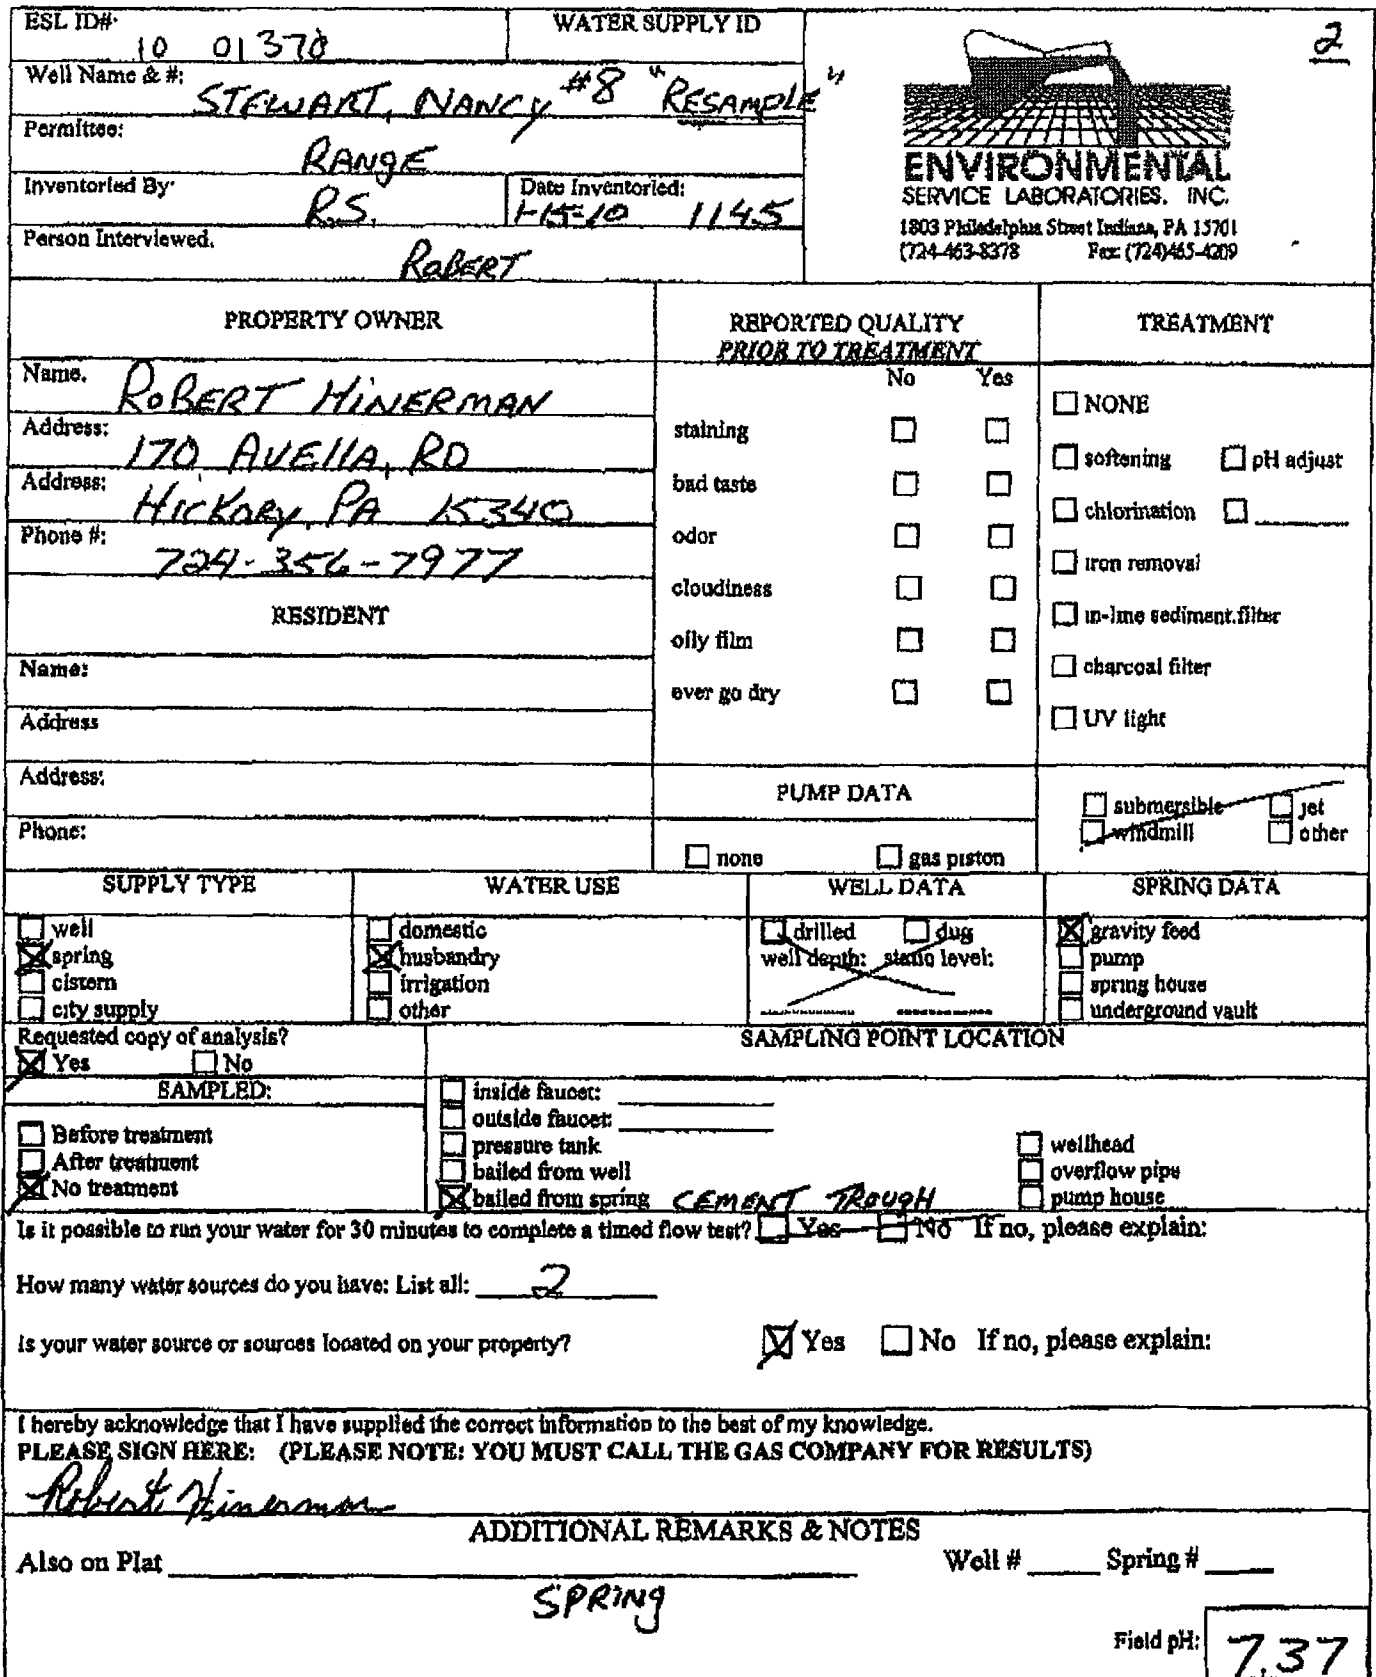 ESL ID#: 10 01370
WATER SUPPLY ID
2
Well Name & #: STEWART, NANCY #8 "RESAMPLE"
Permittee: RANGE
Inventoried By: R.S.
Date Inventoried: 1-15-10 1145
Person Interviewed. ROBERT
ENVIRONMENTAL
SERVICE LABORATORIES, INC.
1803 Philadelphia Street Indiana, PA 15701
(724-463-8378 Fax: (724)465-4209
PROPERTY OWNER
Name. ROBERT HINERMAN
Address: 170 AVEllA, RD
Address: HICKORY, PA 15340
Phone #: 724-356-7977
RESIDENT
Name:
Address
Address:
Phone:
REPORTED QUALITY
PRIOR TO TREATMENT
No Yes
staining
bad taste
odor
cloudiness
oily film
ever go dry
TREATMENT
NONE
softening pH adjust
chlorination
iron removal
in-line sediment.filter
charcoal filter
UV light
PUMP DATA
none gas piston
submersible jet
windmill other
SUPPLY TYPE
well
spring
cistern
city supply
WATER USE
domestic
husbandry
irrigation
other
WELL DATA
drilled dug
well depth: static level:
SPRING DATA
gravity feed
pump
spring house
underground vault
Requested copy of analysis?
Yes No
SAMPLED:
Before treatment
After treatment
No treatment
SAMPLING POINT LOCATION
inside faucet:
outside faucet:
pressure tank
bailed from well
bailed from spring CEMENT TROUGH
wellhead
overflow pipe
pump house
Is it possible to run your water for 30 minutes to complete a timed flow test? Yes No If no, please explain:
How many water sources do you have: List all: 2
Is your water source or sources located on your property? Yes No If no, please explain:
I hereby acknowledge that I have supplied the correct information to the best of my knowledge.
PLEASE SIGN HERE: (PLEASE NOTE: YOU MUST CALL THE GAS COMPANY FOR RESULTS)
Robert Hinerman
ADDITIONAL REMARKS & NOTES
Also on Plat Well # Spring #
SPRING
Field pH: 7.37